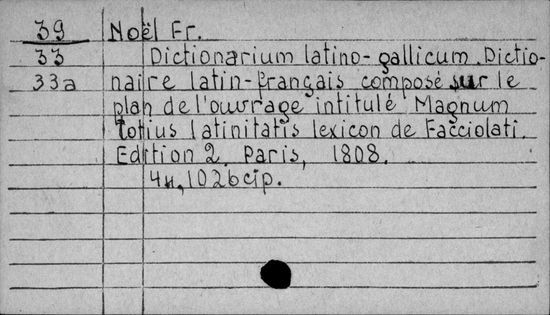 39 Noël Fr.
33 Dictionarium latino-gallicum. Dictio-
33a naire latin-français composé sur le
plan de l'ouvrage intitulé Magnum
totius latinitatis lexicon de Facciolati.
Edition 2. Paris, 1808.
4н, 1026 cip.